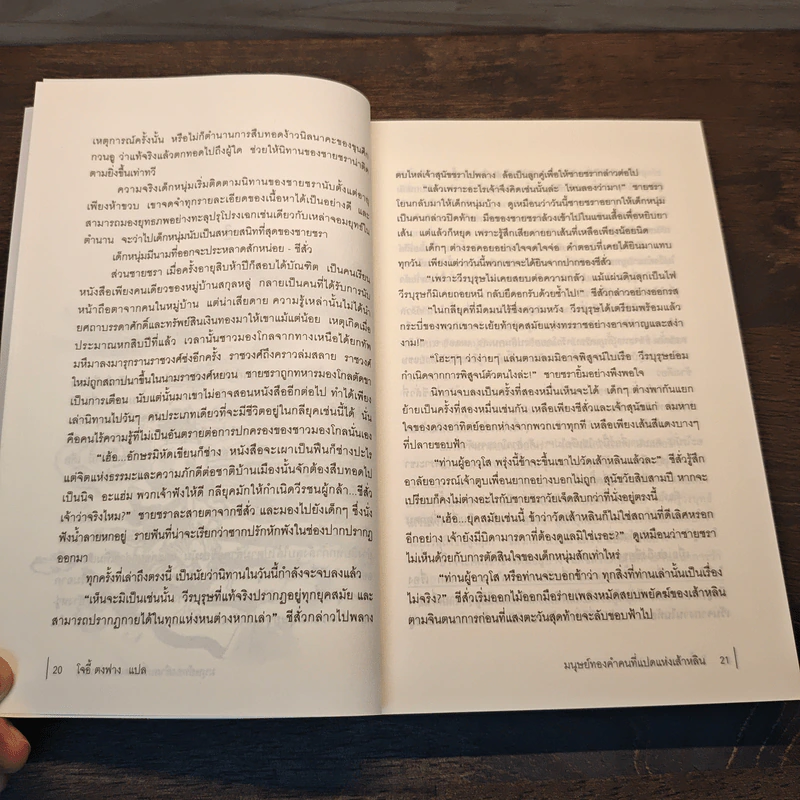 เหตุการณ์ครั้งนั้น หรือไม่ก็ตำนานการสืบทอดง้าวนิลนาคะของขุนศึก
กวนอู ว่าแท้จริงแล้วตกทอดไปถึงผู้ใด ช่วยให้นิทานของชายชราน่าติด
ตามยิ่งขึ้นเท่าทวี
ความจริงเด็กหนุ่มเริ่มติดตามนิทานของชายชรานับตั้งแต่อายุ
เพียงห้าขวบ เขาจดจำทุกรายละเอียดของเนื้อหาได้เป็นอย่างดี และ
สามารถมองยุทธภพอย่างทะลุปรุโปร่งเฉกเช่นเดียวกับเหล่าจอมยุทธ์ใน
ตำนาน จะว่าไปเด็กหนุ่มนับเป็นสหายสนิทที่สุดของชายชรา
เด็กหนุ่มมีนามที่ออกจะประหลาดสักหน่อย - ซีสั่ว
ส่วนชายชรา เมื่อครั้งอายุสิบห้าปีก็สอบได้บัณฑิต เป็นคนเรียน
หนังสือเพียงคนเดียวของหมู่บ้านสกุลหลู่ กลายเป็นคนที่ได้รับการนับ
หน้าถือตาจากคนในหมู่บ้าน แต่น่าเสียดาย ความรู้เหล่านั้นไม่ได้นำ
ยศถาบรรดาศักดิ์และทรัพย์สินเงินทองมาให้เขาแม้แต่น้อย เหตุเกิดเมื่อ
ประมาณหกสิบปีที่แล้ว เวลานั้นชาวมองโกลจากทางเหนือได้ยกทัพ
มหึมาลงมารุกรานราชวงศ์ซ่งอีกครั้ง ราชวงศ์ซ่งถึงคราวล่มสลาย ราชวงศ์
ใหม่ถูกสถาปนาขึ้นในนามราชวงศ์หยวน ชายชราถูกทหารมองโกลตัดขา
เป็นการเตือน นับแต่นั้นมาเขาไม่อาจสอนหนังสืออีกต่อไป ทำได้เพียง
เล่านิทานไปวันๆ คนประเภทเดียวที่จะมีชีวิตอยู่ในกลียุคเช่นนี้ได้ นั่น
คือคนไร้ความรู้ที่ไม่เป็นอันตรายต่อการปกครองของชาวมองโกลนั่นเอง
“เฮ้อ...อักษรมิหัดเขียนก็ช่าง หนังสือจะเผาเป็นฟืนก็ช่างปะไร
แต่จิตแห่งธรรมะและความภักดีต่อชาติบ้านเมืองนั้นจักต้องสืบทอดไป
เป็นนิจ อะแฮ่ม พวกเจ้าฟังให้ดี กลียุคมักให้กำเนิดวีรชนผู้กล้า...ซีสั่ว
เจ้าว่าจริงไหม?” ชายชราละสายตาจากซีสั่ว และมองไปยังเด็กๆ ซึ่งนั่ง
ฟังน้ำลายหกอยู่ รายฟันที่น่าจะเรียกว่าซากปรักหักพังในช่องปากปรากฏ
ออกมา
ทุกครั้งที่เล่าถึงตรงนี้ เป็นนัยว่านิทานในวันนี้กำลังจะจบลงแล้ว
“เห็นจะมิเป็นเช่นนั้น วีรบุรุษที่แท้จริงปรากฏอยู่ทุกยุคสมัย และ
สามารถปรากฏกายได้ในทุกแห่งหนต่างหากเล่า” ซีสั่วกล่าวไปพลาง
20 โจอี้ ตงฟาง แปล
ตบไหล่เจ้าสุนัขชราไปพลาง ล้อเป็นลูกคู่เพื่อให้ชายชรากล่าวต่อไป
“แล้วเพราะอะไรเจ้าจึงคิดเช่นนั้นล่ะ ไหนลองว่ามา!” ชายชรา
โยนกลับมาให้เด็กหนุ่มบ้าง ดูเหมือนว่าวันนี้ชายชราอยากให้เด็กหนุ่ม
เป็นคนกล่าวปิดท้าย มือของชายชราล้วงเข้าไปในแขนเสื้อเพื่อหยิบยา
เส้น แต่แล้วก็หยุด เพราะรู้สึกเสียดายยาเส้นที่เหลือเพียงน้อยนิด
เด็กๆ ต่างรอคอยอย่างใจจดใจจ่อ คำตอบที่เคยได้ยินมาแทบ
ทุกวัน เพียงแต่ว่าวันนี้พวกเขาจะได้ยินจากปากของซีสั่ว
“เพราะวีรบุรุษไม่เคยสยบต่อความกลัว แม้แผ่นดินลุกเป็นไฟ
วีรบุรุษก็มิเคยถอยหนี กลับยืดอกรับด้วยซ้ำไป!” ซีสั่วกล่าวอย่างออกรส
“ในกลียุคที่มืดมนไร้ซึ่งความหวัง วีรบุรุษได้เตรียมพร้อมแล้ว
กระบี่ของพวกเขาจะเย้ยท้ายุคสมัยแห่งทรราชอย่างอาจหาญและสง่า
งาม!”
“โฮะๆๆ ว่าง่ายๆ แล่นตามลมมิอาจพิสูจน์ใบเรือ วีรบุรุษย่อม
กำเนิดจากการพิสูจน์ตัวตนไงล่ะ!” ชายชรายิ้มอย่างพึงพอใจ
นิทานจบลงเป็นครั้งที่สองหมื่นเห็นจะได้ เด็กๆ ต่างพากันแยก
ย้ายเป็นครั้งที่สองหมื่นเช่นกัน เหลือเพียงซีสั่วและเจ้าสุนัขแก่ ลมหาย
ใจของดวงอาทิตย์ออกห่างจากพวกเขาทุกที เหลือเพียงเส้นสีแดงบางๆ
ที่ปลายขอบฟ้า
“ท่านผู้อาวุโส พรุ่งนี้ข้าจะขึ้นเขาไปวัดเส้าหลินแล้วล่ะ” ซีสั่วรู้สึก
อาลัยอาวรณ์เจ้าตูบเพื่อนยากอย่างบอกไม่ถูก สุนัขวัยสิบสามปี หากจะ
เปรียบก็คงไม่ต่างอะไรกับชายชราวัยเจ็ดสิบกว่าที่นั่งอยู่ตรงนี้
“เฮ้อ...ยุคสมัยเช่นนี้ ข้าว่าวัดเส้าหลินก็ไม่ใช่สถานที่ดีเลิศหรอก
อีกอย่าง เจ้ายังมีบิดามารดาที่ต้องดูแลมิใช่เรอะ?” ดูเหมือนว่าชายชรา
ไม่เห็นด้วยกับการตัดสินใจของเด็กหนุ่มสักเท่าไหร่
“ท่านผู้อาวุโส หรือท่านจะบอกข้าว่า ทุกสิ่งที่ท่านเล่านั้นเป็นเรื่อง
ไม่จริง?” ซีสั่วเริ่มออกไม้ออกมือร่ายเพลงหมัดสยบพยัคฆ์ของเส้าหลิน
ตามจินตนาการก่อนที่แสงตะวันสุดท้ายจะลับขอบฟ้าไป
มนุษย์ทองคำคนที่แปดแห่งเส้าหลิน 21